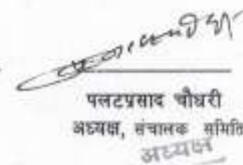 पलटप्रसाद चौधरी
अध्यक्ष, संचालक समिति
अध्यक्ष